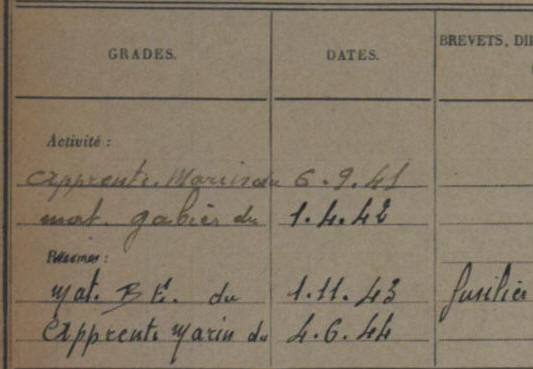 GRADES. DATES. BREVETS, DI
Activité :
Apprenti. Marin du 6.9.41
mat. gabier du 1.4.42
Réserves :
Mat. Bt. du 1.11.43 fusilier
Apprenti Marin du 4.6.44